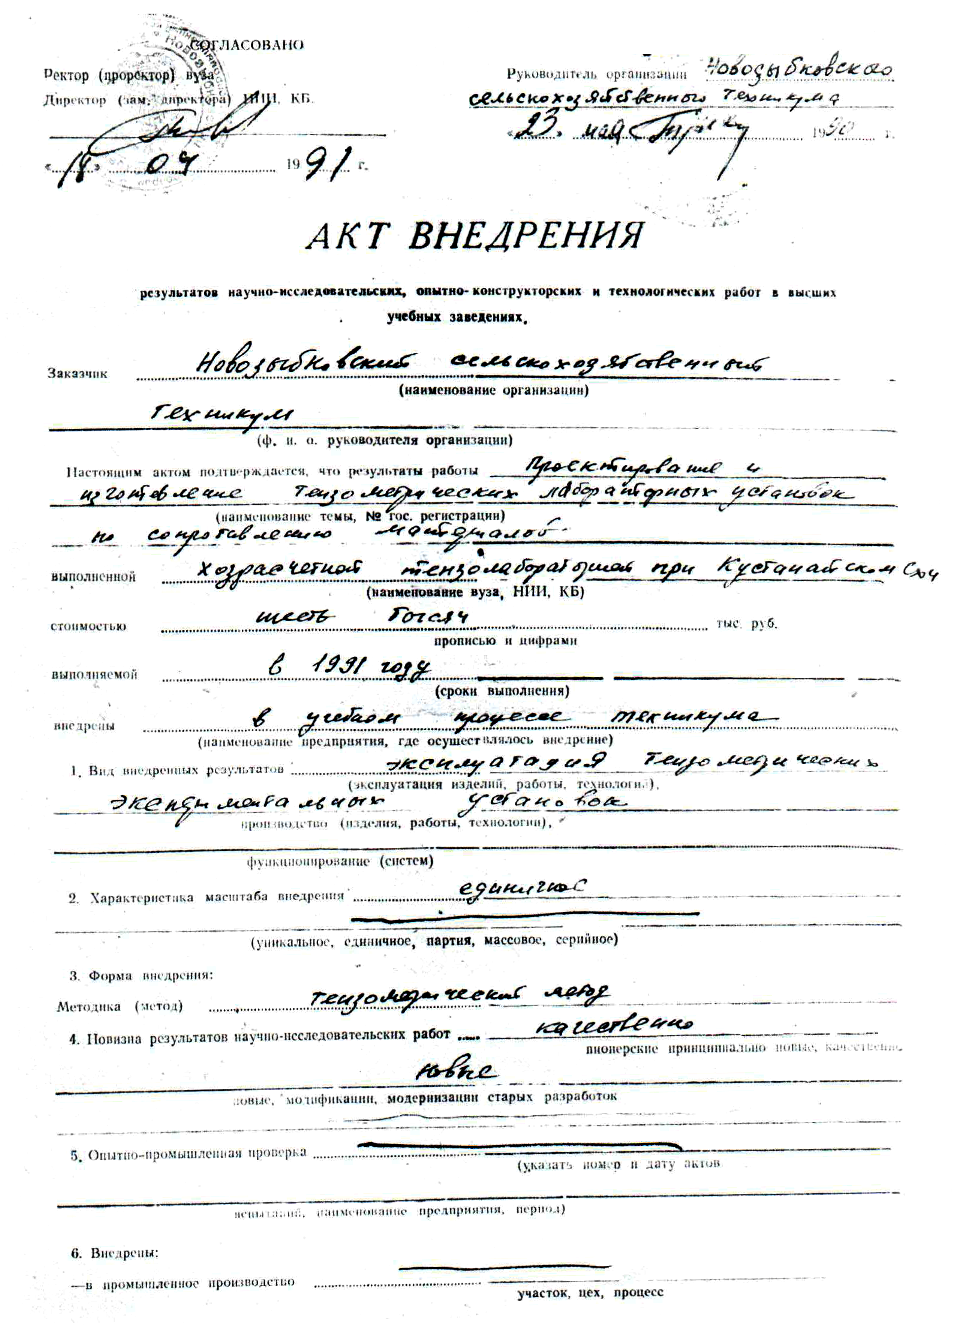 СОГЛАСОВАНО
Ректор (проректор) вуза
Директор (зам. директора) НИИ, КБ.
«14» 04 1991 г.
Руководитель организации Новозыбковского
сельскохозяйственного техникума
«23» мая 1990 г.
АКТ ВНЕДРЕНИЯ
результатов научно-исследовательских, опытно-конструкторских и технологических работ в высших
учебных заведениях.
Заказчик Новозыбковский сельскохозяйственный
(наименование организации)
техникум
(ф. и. о. руководителя организации)
Настоящим актом подтверждается, что результаты работы Проектирование и
изготовление тензометрических лабораторных установок
(наименование темы, № гос. регистрации)
по сопротивлению материалов
выполненной хозрасчетной тензолабораторией при Кустанайском СХИ
(наименование вуза, НИИ, КБ)
стоимостью шесть тысяч тыс. руб.
прописью и цифрами
выполняемой в 1991 году
(сроки выполнения)
внедрены в учебном процессе техникума
(наименование предприятия, где осуществлялось внедрение)
1. Вид внедренных результатов эксплуатация тензометрических
(эксплуатация изделий, работы, технологии),
экспериментальных установок
производство (изделия, работы, технологии),
функционирование (систем)
2. Характеристика масштаба внедрения единичное
(уникальное, единичное, партия, массовое, серийное)
3. Форма внедрения:
Методика (метод) тензометрический метод
4. Новизна результатов научно-исследовательских работ качественно
пионерские принципиально новые, качественно
новые
новые, модификации, модернизации старых разработок
5. Опытно-промышленная проверка
(указать номер и дату актов
испытаний, наименование предприятия, период)
6. Внедрены:
—в промышленное производство
участок, цех, процесс